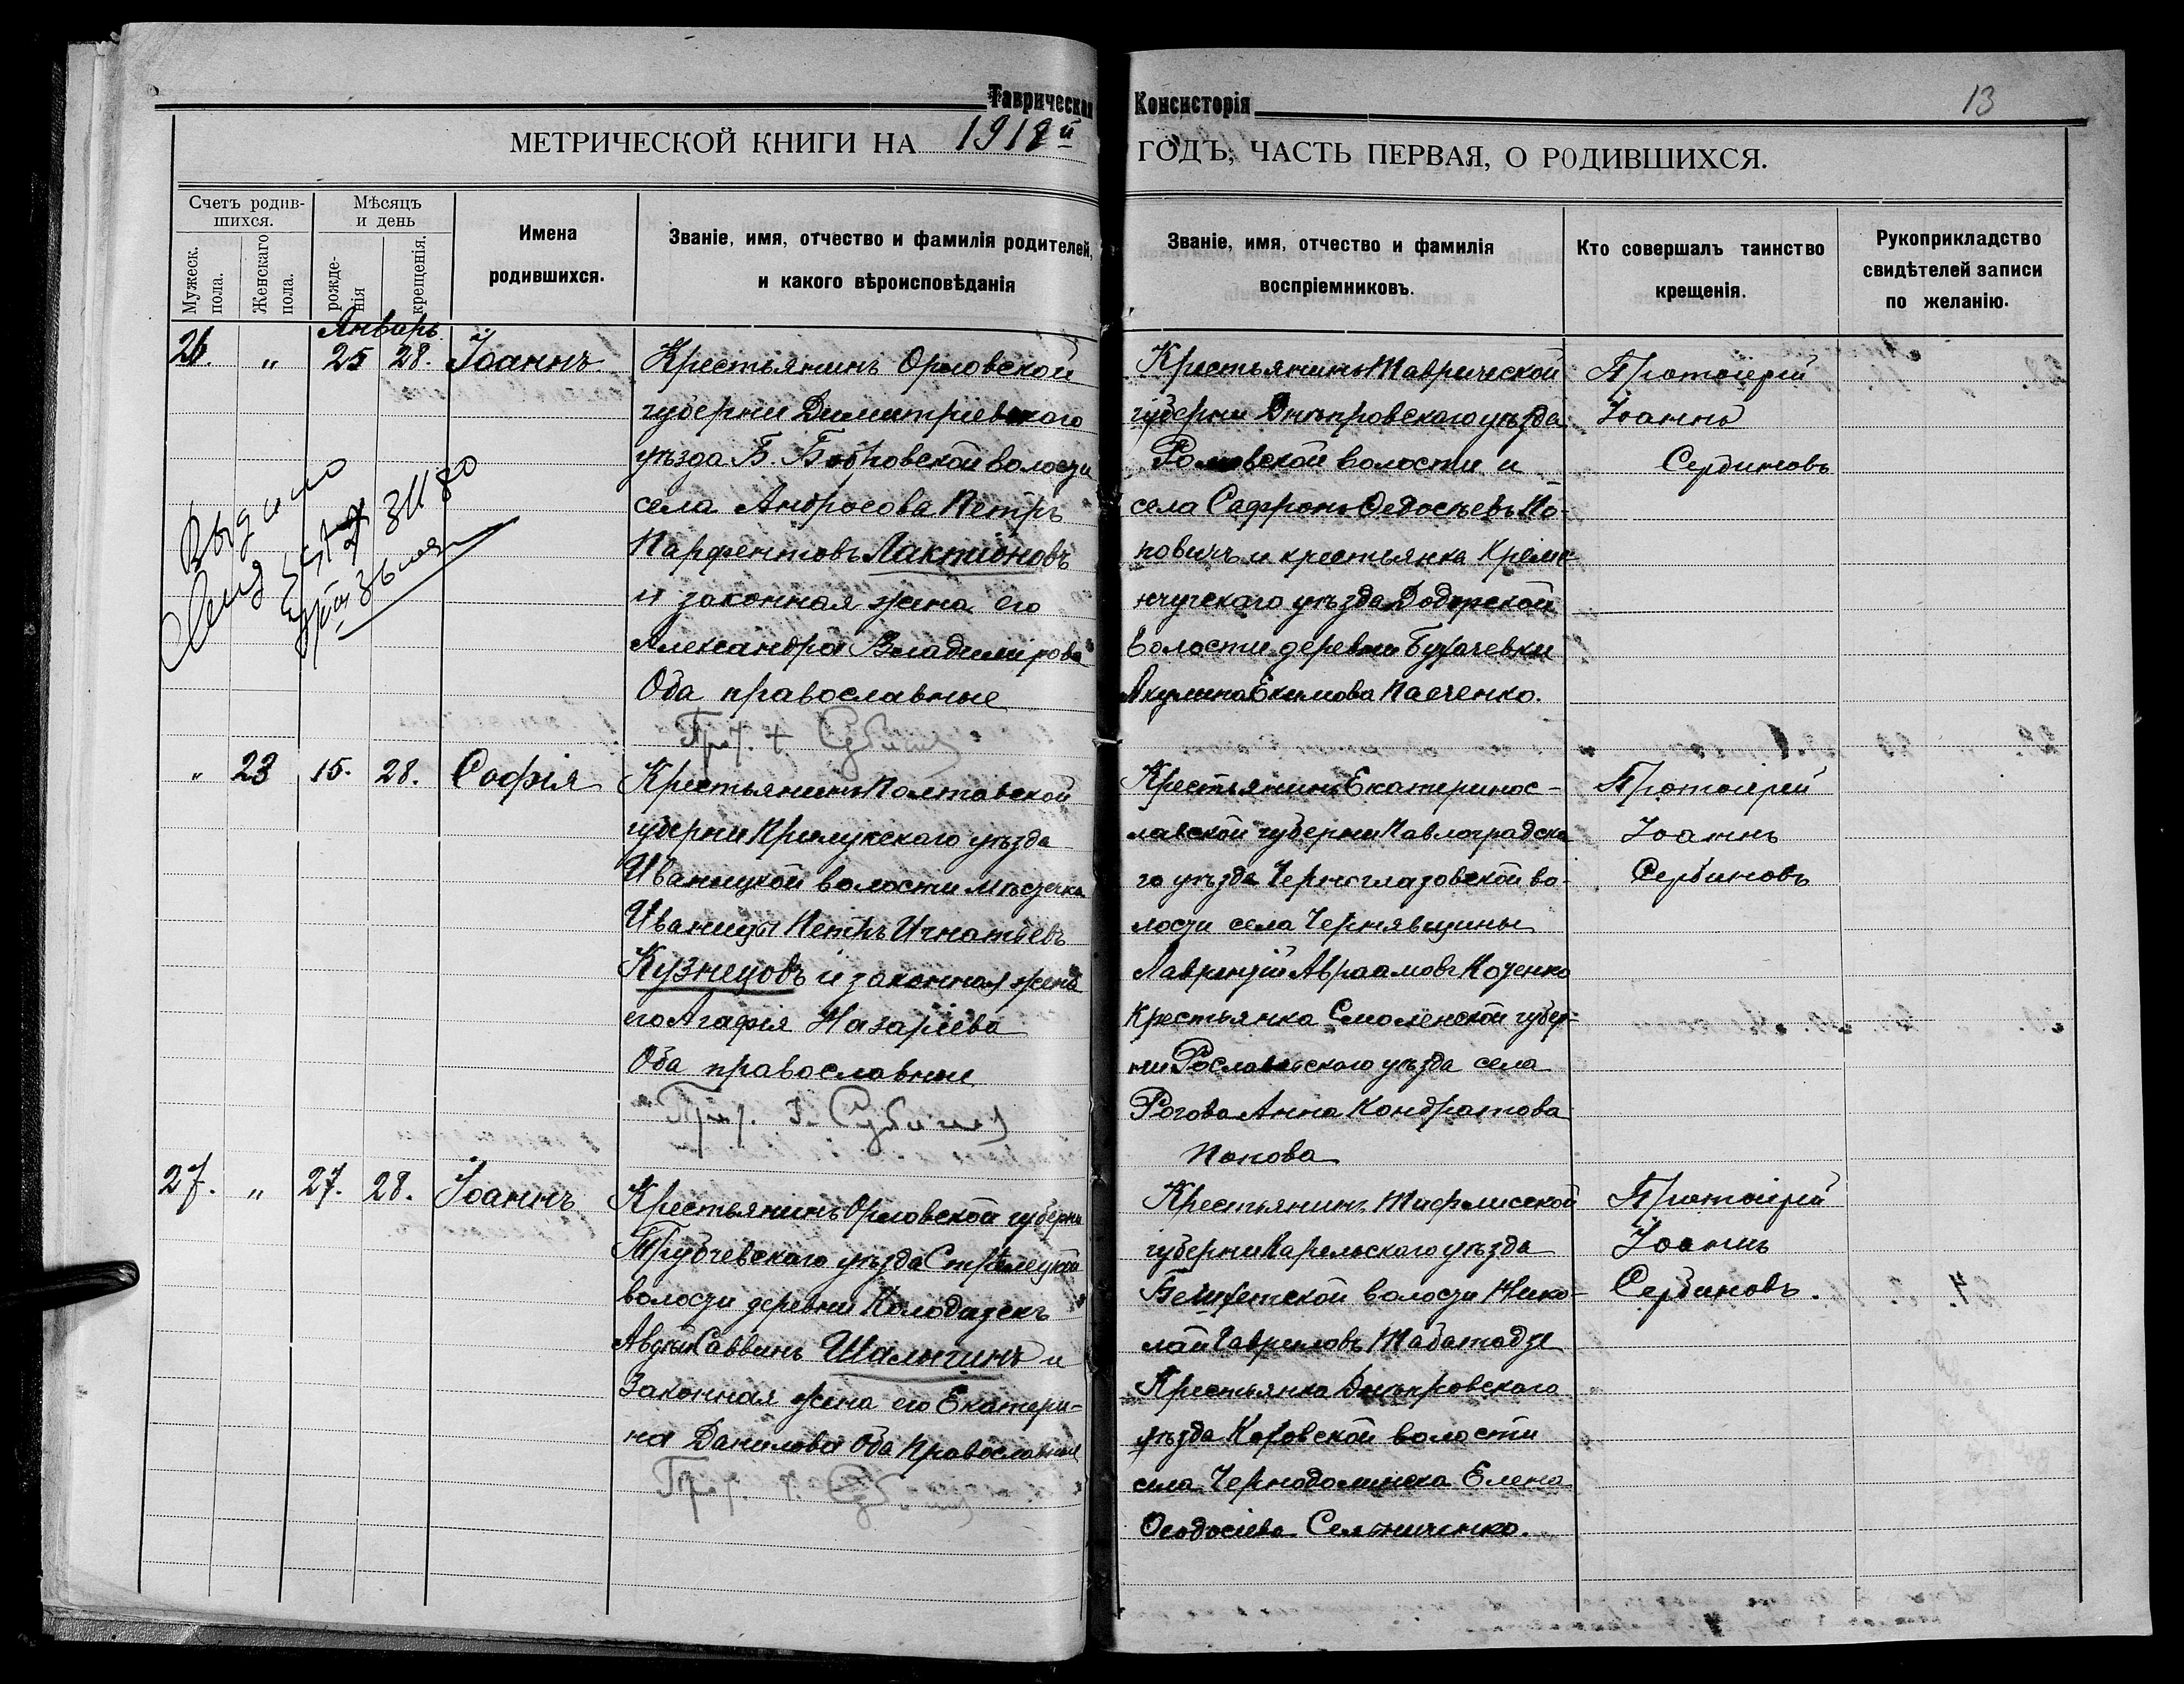 Таврическая Консисторія
13
МЕТРИЧЕСКОЙ КНИГИ НА 1912й ГОДЪ, ЧАСТЬ ПЕРВАЯ, О РОДИВШИХСЯ.
Счетъ родив-
шихся.
Мужеск.
пола.
Женскаго
пола.
Мѣсяцъ
и день
рожде-
нія
крещенія.
Имена
родившихся.
Званіе, имя, отчество и фамилія родителей,
и какого вѣроисповѣданія
Званіе, имя, отчество и фамилія
воспріемниковъ.
Кто совершалъ таинство
крещенія.
Рукоприкладство
свидѣтелей записи
по желанію.
Январь
26. " 25 28. Іоаннъ
Крестьянинъ Орловской
губерни Димитріевскаго
уѣзда Б. Бобровской волости
села Андросова Петръ
Парфентовъ Лактіоновъ
и законная жена его
Александра Владимирова
Оба православные
Крестьянинъ Таврической
губерни Днѣпровскаго уѣзда
волости и
села Сафронъ Федосѣевъ По-
повичъ и крестьянка Креме-
нчугскаго уѣзда
волости деревни
Акулина Екимова Пасченко.
Протоіерей
Іоаннъ
Сербиновъ
" 23 15. 28. Софія
Крестьянинъ Полтавской
губерни Прилукскаго уѣзда
Иваницкой волости мѣстечка
Иваницы Петръ Игнатьевъ
Кузнецовъ и законная жена
его Агафія Назаріева
Оба православные
Крестьянинъ Екатеринос-
лавской губерни Павлоградска
го уѣзда Черноглазовской во-
лости села Чернявщины
Лаврентій Авраамовъ Коценко
Крестьянка Смоленской губер-
ни Рославльскаго уѣзда села
Рогова Анна Кондратова
Попова
Протоіерей
Іоаннъ
Сербиновъ
27. " 27. 28. Іоаннъ
Крестьянинъ Орловской губерни
Трубчевскаго уѣзда Стрѣлецкой
волости деревни Колодазекъ
Авдѣй Саввинъ Шалыгинъ и
Законная жена его Екатери-
на Данилова Оба православные
Крестьянинъ Тифлисской
губерни Карельскаго уѣзда
волости Нико-
лай Гавриловъ Табатадзе
Крестьянка Днѣпровскаго
уѣзда Каховской волости
села Чернодолинска Елена
Ѳеодосіева Сельниченко.
Протоіерей
Іоаннъ
Сербиновъ.